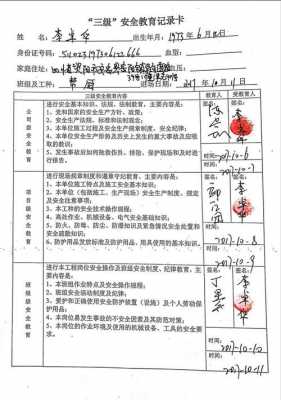 “三级”安全教育记录卡
姓名 出生年月：1973年6月12日
身份证号码： 血型：
家庭住址：
班组及工种： 进场日期：2017年10月11日
三级安全教育内容 教育人 受教育人
进行安全基本知识、法规、法制教育，主要内容是：
1、党和国家的安全生产方针、政策；
2、安全生产法规、标准和法制观念；
3、本单位施工过程及安全生产规章制度，安全纪律；
4、本单位安全生产形势及历史上发生的重大事故及应吸取的教训；
5、发生事故后如何抢救伤员、排险、保护现场和及时进行报告。
签名： 签名：
时间：2017-10-6
时间：-10-7
进行现场规章制度和遵章守纪教育，主要内容是：
1、本单位施工特点及施工安全基本知识；
2、本单位（包括施工、生产现场）安全生产制度、规定及安全注意事项；
3、本工种的安全技术操作规程；
4、高处作业、机械设备、电气安全基础知识；
5、防火、防毒、防尘、防爆知识及紧急情况安全处置和安全疏散知识；
6、防护用品发放标准及防护用品、用具使用的基本知识。
签名： 签名：
2017-10-8
时间：2017-10-9
进行本工程岗位安全操作及班组安全制度、纪律教育，主要内容是：
1、本班组作业特点及安全操作规程；
2、班组安全活动制度及纪律；
3、爱护和正确使用安全防护装置（设施）及个人劳动保护用品；
4、本岗位易发生事故的不安全因素及其防范对策；
5、本岗位的作业环境及使用的机械设备、工具的安全要求。
签名： 签名：
2017-10-10
时间：2017-10-11